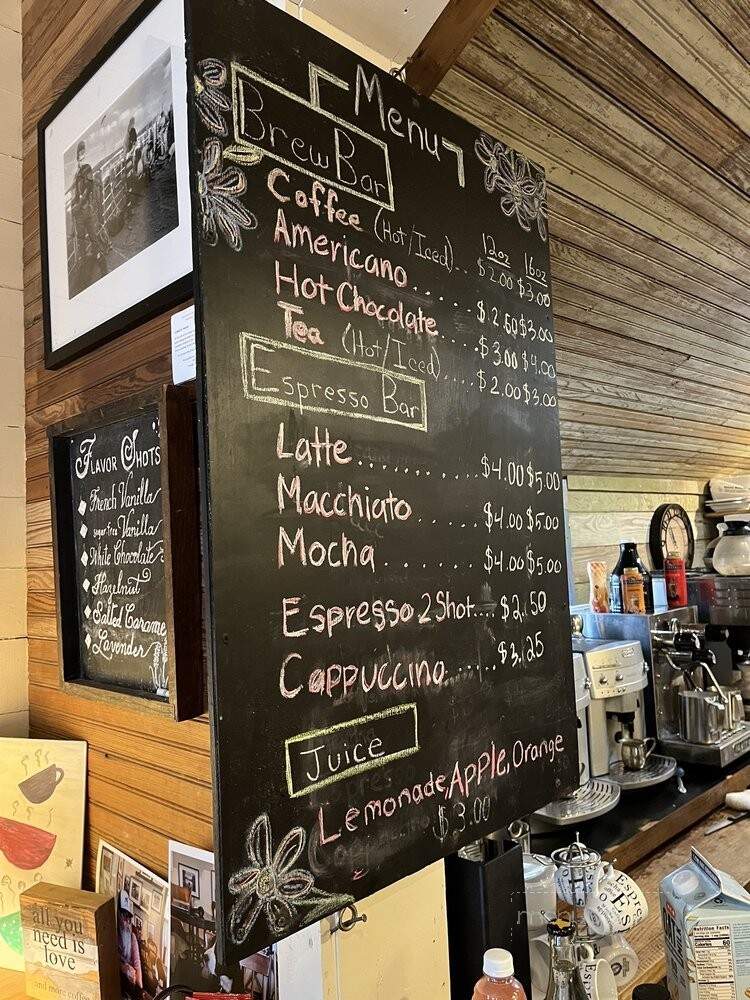 Menu
Brew Bar
12oz 16oz
Coffee (Hot/Iced).. $2.00 $3.00
Americano...... $2.50 $3.00
Hot Chocolate.... $3.00 $4.00
Tea (Hot/Iced).... $2.00 $3.00
Espresso Bar
Latte......... $4.00 $5.00
Macchiato...... $4.00 $5.00
Mocha........ $4.00 $5.00
Espresso 2 Shot.... $2.50
Cappuccino...... $3.25
Juice
Lemonade, Apple, Orange
$3.00
Flavor Shots
French Vanilla
sugar free Vanilla
White Chocolate
Hazelnut
Salted Caramel
Lavender
all you
need is
love
and more coffee
Nutrition Facts
60